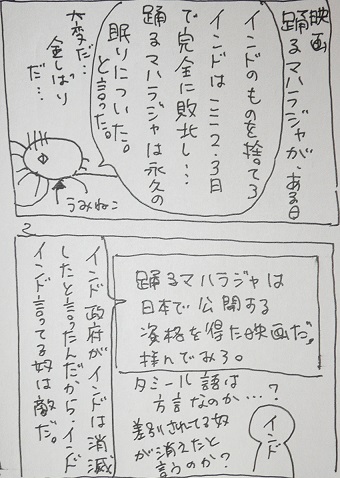 映画
踊るマハラジャが、ある日
インドのものを捨てろ
インドはここ2.3日
で完全に敗北し…
踊るマハラジャは永久の
眠りについた。
と言った。
大変だ…
金しばり
だ…
うみねこ
2
踊るマハラジャは
日本で公開ある
資格を得た映画だ。
拝んでみろ。
タミール語は
方言なのか…?
差別されてる奴
が消えたと
言うのか?
インド
インド政府がインドは消滅
したと言ったんだから、インド
インド言ってる奴は敵だ。